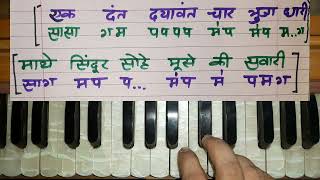 एक दंत दयावंत चार भुजा धारी
सासा ग म प प प प मं प मं प म..ग
माथे सिंदूर सोहे मूसे की सवारी
सा ग म प प... मं प मं प म ग